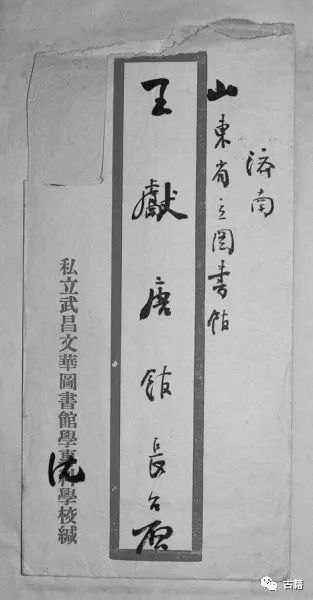 濟南
山東省立圖書館
王獻唐館長台啟
私立武昌文華圖書館學專科學校緘
沈
古籍